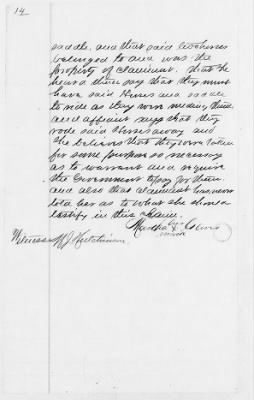 14
saddle and that said two horses
belonged to and was the
property of claimant. that she
heard them say that they must
have said Horses and saddle
to ride as they were needing them
and affiant says that they
rode said Horses away and
she believes that they were taken
for some purpose so necessary
as to warrant and require
the Government to pay for them
and also that claimant has never
told her as to what she should
testify in this claim.
her
Martha X
mark
Witness J Hutchinson